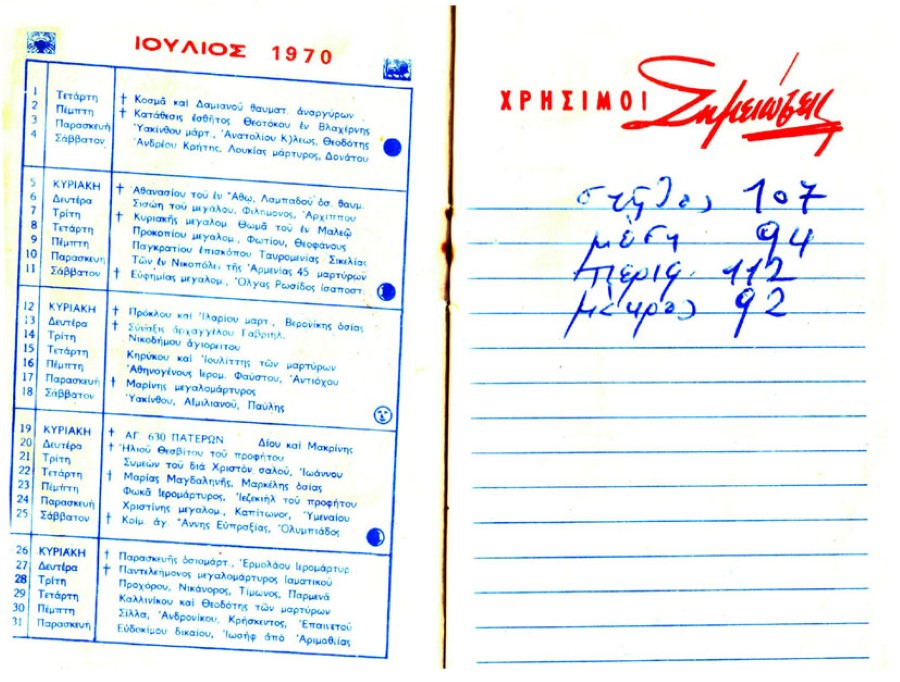 ΙΟΥΛΙΟΣ 1970
1 Τετάρτη † Κοσμᾶ καὶ Δαμιανοῦ θαυματ. ἀναργύρων
2 Πέμπτη † Κατάθεσις ἐσθῆτος Θεοτόκου ἐν Βλαχέρνης
3 Παρασκευή Ὑακίνθου μάρτ., Ἀνατολίου Κ)λεως, Θεοδότης
4 Σάββατον Ἀνδρέου Κρήτης, Λουκίας μάρτυρος, Δονάτου
5 ΚΥΡΙΑΚΗ † Ἀθανασίου τοῦ ἐν Ἄθῳ, Λαμπαδοῦ ὁσ. θαυμ.
6 Δευτέρα Σισώη τοῦ μεγάλου, Φιλήμονος, Ἀρχίππου
7 Τρίτη † Κυριακῆς μεγαλομ. Θωμᾶ τοῦ ἐν Μαλεῷ
8 Τετάρτη Προκοπίου μεγαλομ., Φωτίου, Θεοφάνους
9 Πέμπτη Παγκρατίου ἐπισκόπου Ταυρομενίας Σικελίας
10 Παρασκευή Τῶν ἐν Νικοπόλει τῆς Ἀρμενίας 45 μαρτύρων
11 Σάββατον † Εὐφημίας μεγαλομ., Ὄλγας Ρωσίδος ἰσαποστ.
12 ΚΥΡΙΑΚΗ † Πρόκλου καὶ Ἱλαρίου μαρτ., Βερονίκης ὁσίας
13 Δευτέρα † Σύναξις ἀρχαγγέλου Γαβριήλ.
14 Τρίτη Νικοδήμου ἁγιορείτου
15 Τετάρτη Κηρύκου καὶ Ἰουλίττης τῶν μαρτύρων
16 Πέμπτη Ἀθηνογένους Ἱερομ. Φαύστου, Ἀντιόχου
17 Παρασκευή † Μαρίνης μεγαλομάρτυρος
18 Σάββατον Ὑακίνθου, Αἰμιλιανοῦ, Παύλης
19 ΚΥΡΙΑΚΗ † ΑΓ. 630 ΠΑΤΕΡΩΝ Δίου καὶ Μακρίνης
20 Δευτέρα † Ἠλιοῦ Θεσβίτου τοῦ προφήτου
21 Τρίτη Συμεὼν τοῦ διὰ Χριστὸν σαλοῦ, Ἰωάννου
22 Τετάρτη † Μαρίας Μαγδαληνῆς, Μαρκέλης ὁσίας
23 Πέμπτη Φωκᾶ Ἱερομάρτυρος, Ἰεζεκιὴλ τοῦ προφήτου
24 Παρασκευή Χριστίνης μεγαλομ., Καπίτωνος, Ὑμεναίου
25 Σάββατον † Κοίμ. ἁγ. Ἄννης Εὐπραξίας, Ὀλυμπιάδος
26 ΚΥΡΙΑΚΗ † Παρασκευῆς ὁσιομάρτ., Ἑρμολάου Ἱερομάρτυρ
27 Δευτέρα † Παντελεήμονος μεγαλομάρτυρος ἰαματικοῦ
28 Τρίτη Προχόρου, Νικάνορος, Τίμωνος, Παρμενᾶ
29 Τετάρτη Καλλινίκου καὶ Θεοδότης τῶν μαρτύρων
30 Πέμπτη Σίλλα, Ἀνδρονίκου, Κρήσκεντος, Ἐπαινετοῦ
31 Παρασκευή Εὐδοκίμου δικαίου, Ἰωσὴφ ἀπὸ Ἀριμαθείας
ΧΡΗΣΙΜΟΙ Σημειώσεις
στήθος 107
μέση 94
περιφ. 112
μάκρος 92